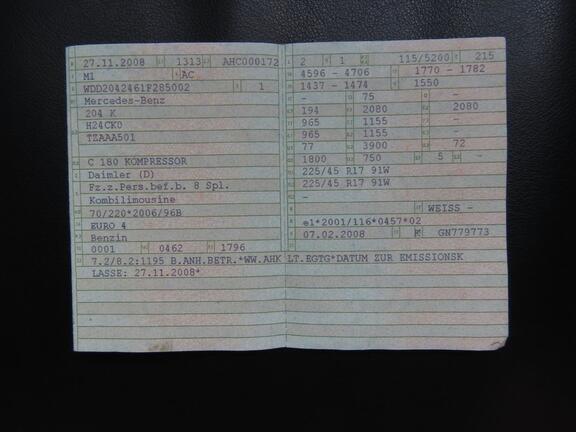 27.11.2008 1313 AHC000172
M1 AC
WDD2042461F285002 1
Mercedes-Benz
204 K
H24CK0
TZAAA501
C 180 KOMPRESSOR
Daimler (D)
Fz.z.Pers.bef.b. 8 Spl.
Kombilimousine
70/220*2006/96B
EURO 4
Benzin
0001 0462 1796
7.2/8.2:1195 B.ANH.BETR.*WW.AHK LT.EGTG*DATUM ZUR EMISSIONSK
LASSE: 27.11.2008*
2 1 115/5200 215
4596 - 4706 1770 - 1782
1437 - 1474 1550
- 75 -
194 2080 2080
965 1155 -
965 1155 -
77 3900 72
1800 750 5 -
225/45 R17 91W
225/45 R17 91W
-
WEISS -
e1*2001/116*0457*02
07.02.2008 K GN779773